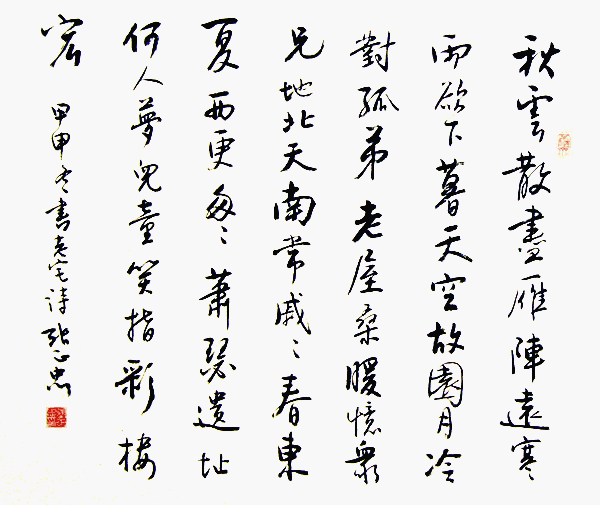 秋雲散盡雁陣遠寒
雨欲下暮天空故園月冷
對孤弟老屋桑暖憶衆
兄地北天南常戚〻春東
夏西更匆〻蕭瑟遺址
何人夢兒童笑指彩樓
宏 甲申冬書老宅詩張正忠